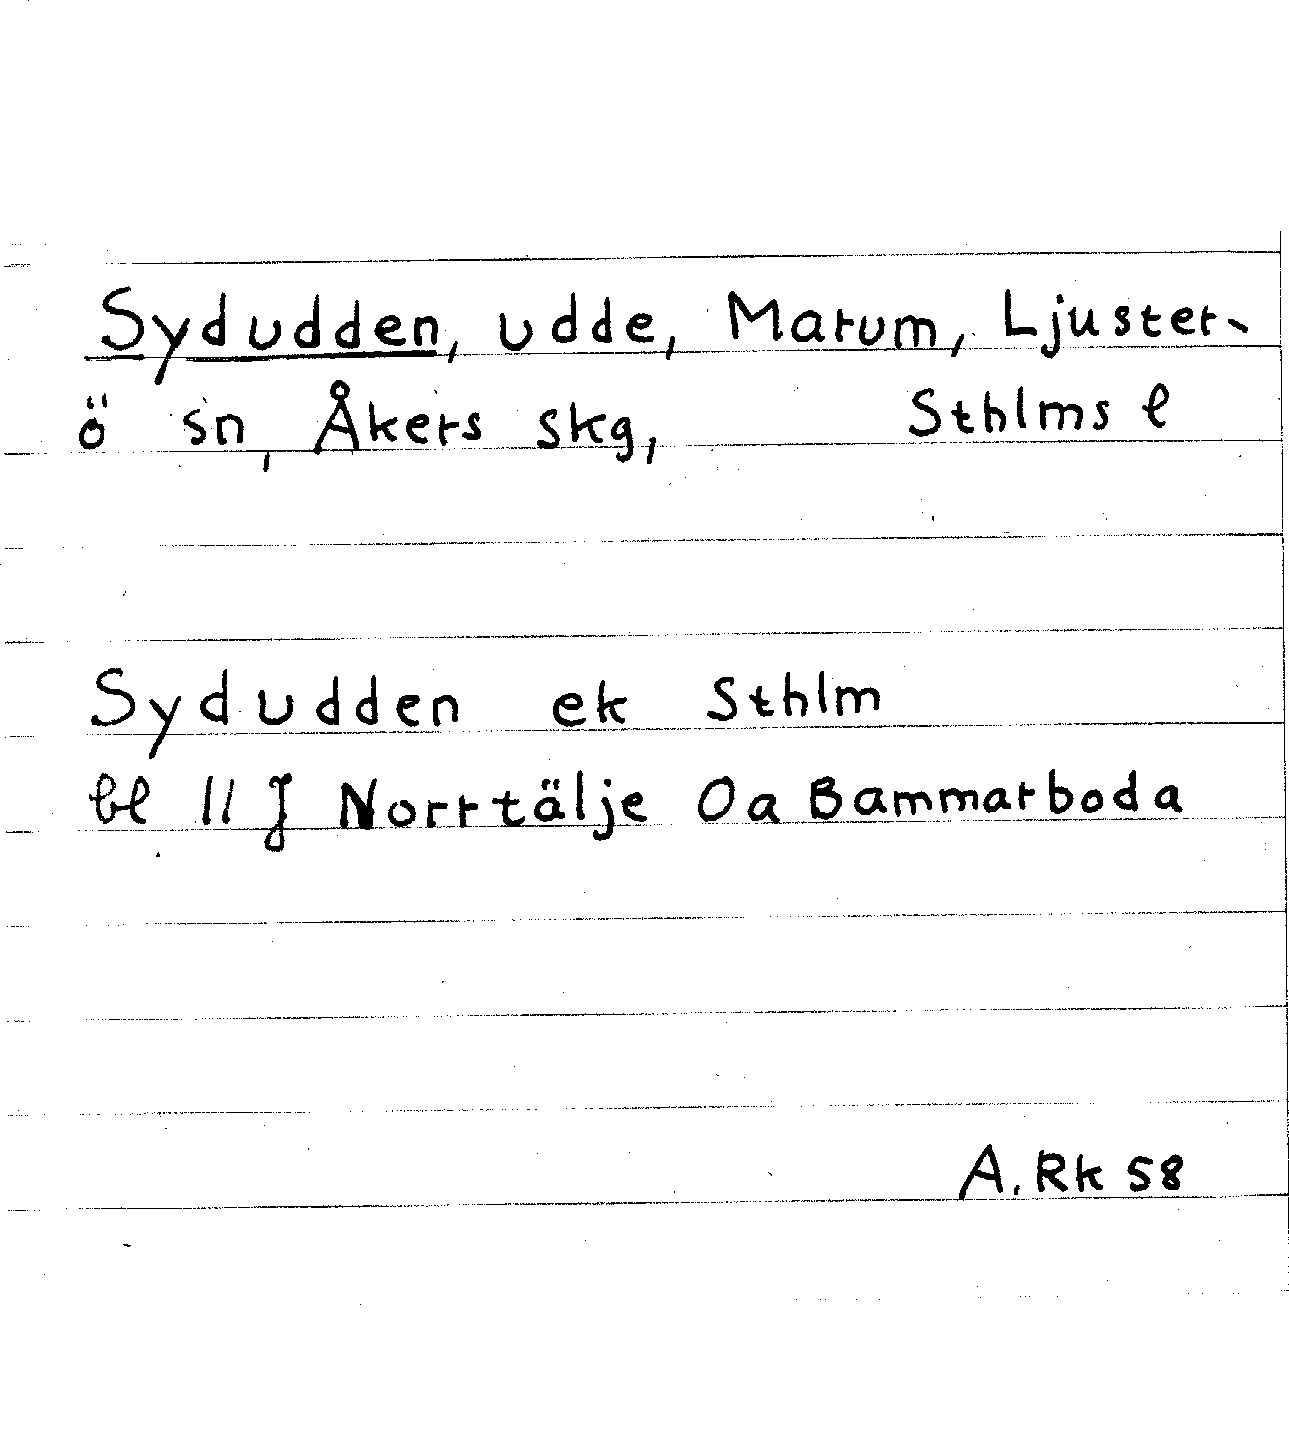 Sydudden, udde, Marum, Ljuster-
ö sn, Åkers skg, Sthlms l
Sydudden ek Sthlm
bl 11 J Norrtälje Oa Bammarboda
A. Rk 58